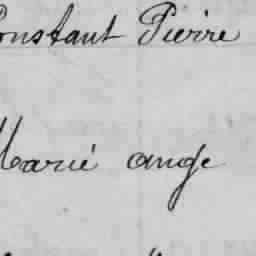 Constant Pierre
Marie ange